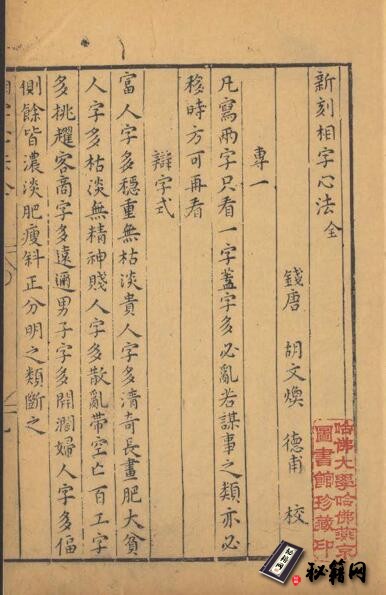 新刻相字心法全
錢唐 胡文煥 德甫 校
專一
凡寫兩字只看一字蓋字多必亂若謀事之類亦必
移時方可再看
辯字式
富人字多穩重無枯淡貴人字多清奇長畫肥大貧
人字多枯淡無精神賤人字多散亂帶空亡百工字
多挑趯客商字多遠邇男子字多開濶婦人字多偪
側餘皆濃淡肥瘦斜正分明之類斷之
哈佛大學哈佛燕京
圖書館珍藏印
秘籍网